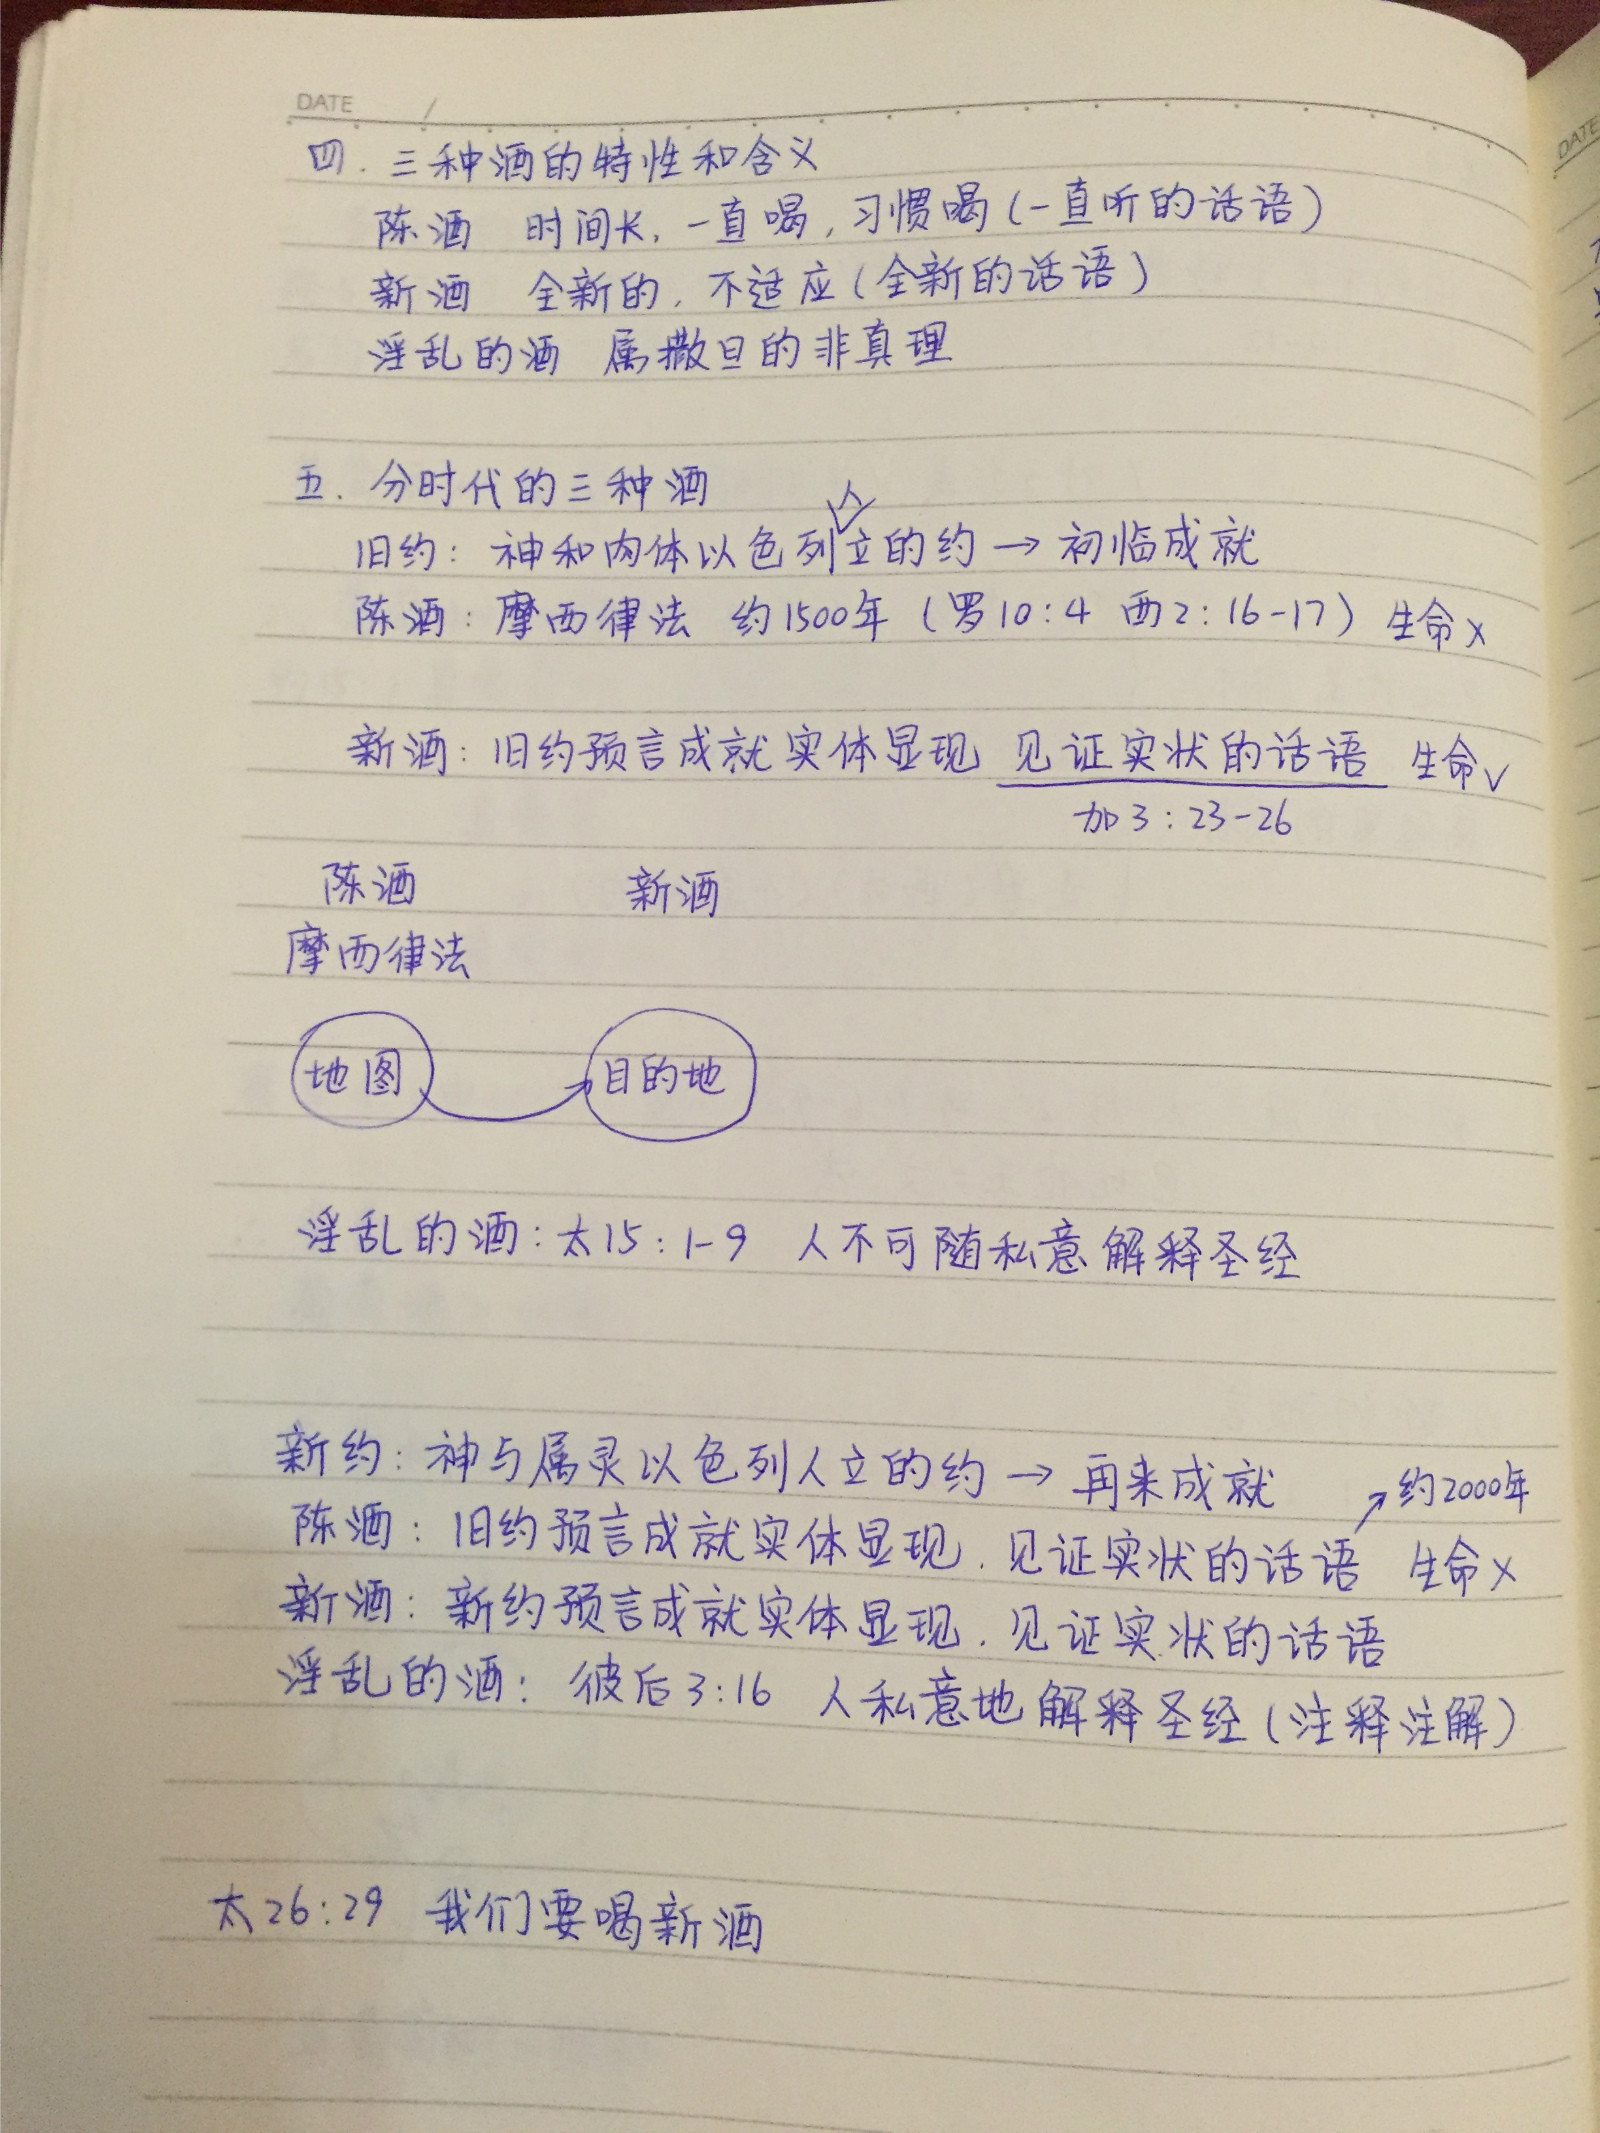 DATE /
四. 三种酒的特性和含义
陈酒 时间长, 一直喝, 习惯喝(一直听的话语)
新酒 全新的, 不适应(全新的话语)
淫乱的酒 属撒旦的非真理
五. 分时代的三种酒
旧约: 神和肉体以色列人立的约→初临成就
陈酒: 摩西律法 约1500年 (罗10:4 西2:16-17) 生命x
新酒: 旧约预言成就实体显现 见证实状的话语 生命✓
加3:23-26
陈酒 新酒
摩西律法
地图 → 目的地
淫乱的酒: 太15:1-9 人不可随私意解释圣经
新约: 神与属灵以色列人立的约→再来成就
↗约2000年
陈酒: 旧约预言成就实体显现, 见证实状的话语 生命x
新酒: 新约预言成就实体显现, 见证实状的话语
淫乱的酒: 彼后3:16 人私意地解释圣经(注释注解)
太26:29 我们要喝新酒
DATE